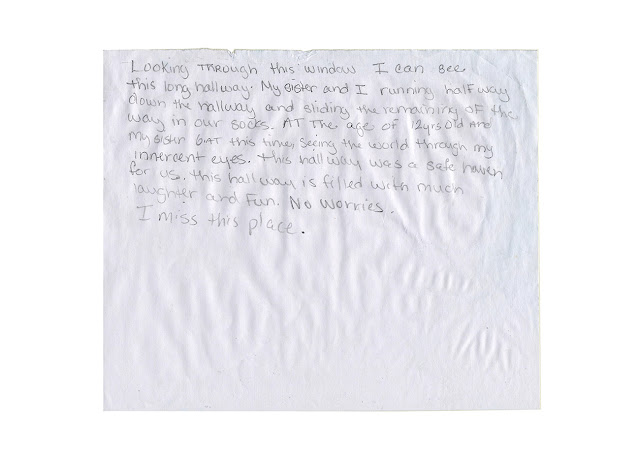 Looking Through this window I can see
this long hallway. My sister and I running half way
down the hallway and sliding the remaining of the
way in our socks. AT The age of 12yrs old and
my sister 6 AT this time, seeing the world through my
innercent eyes. this hallway was a safe haven
for us. this hallway is filled with much
laughter and Fun. No worries.
I miss this place.